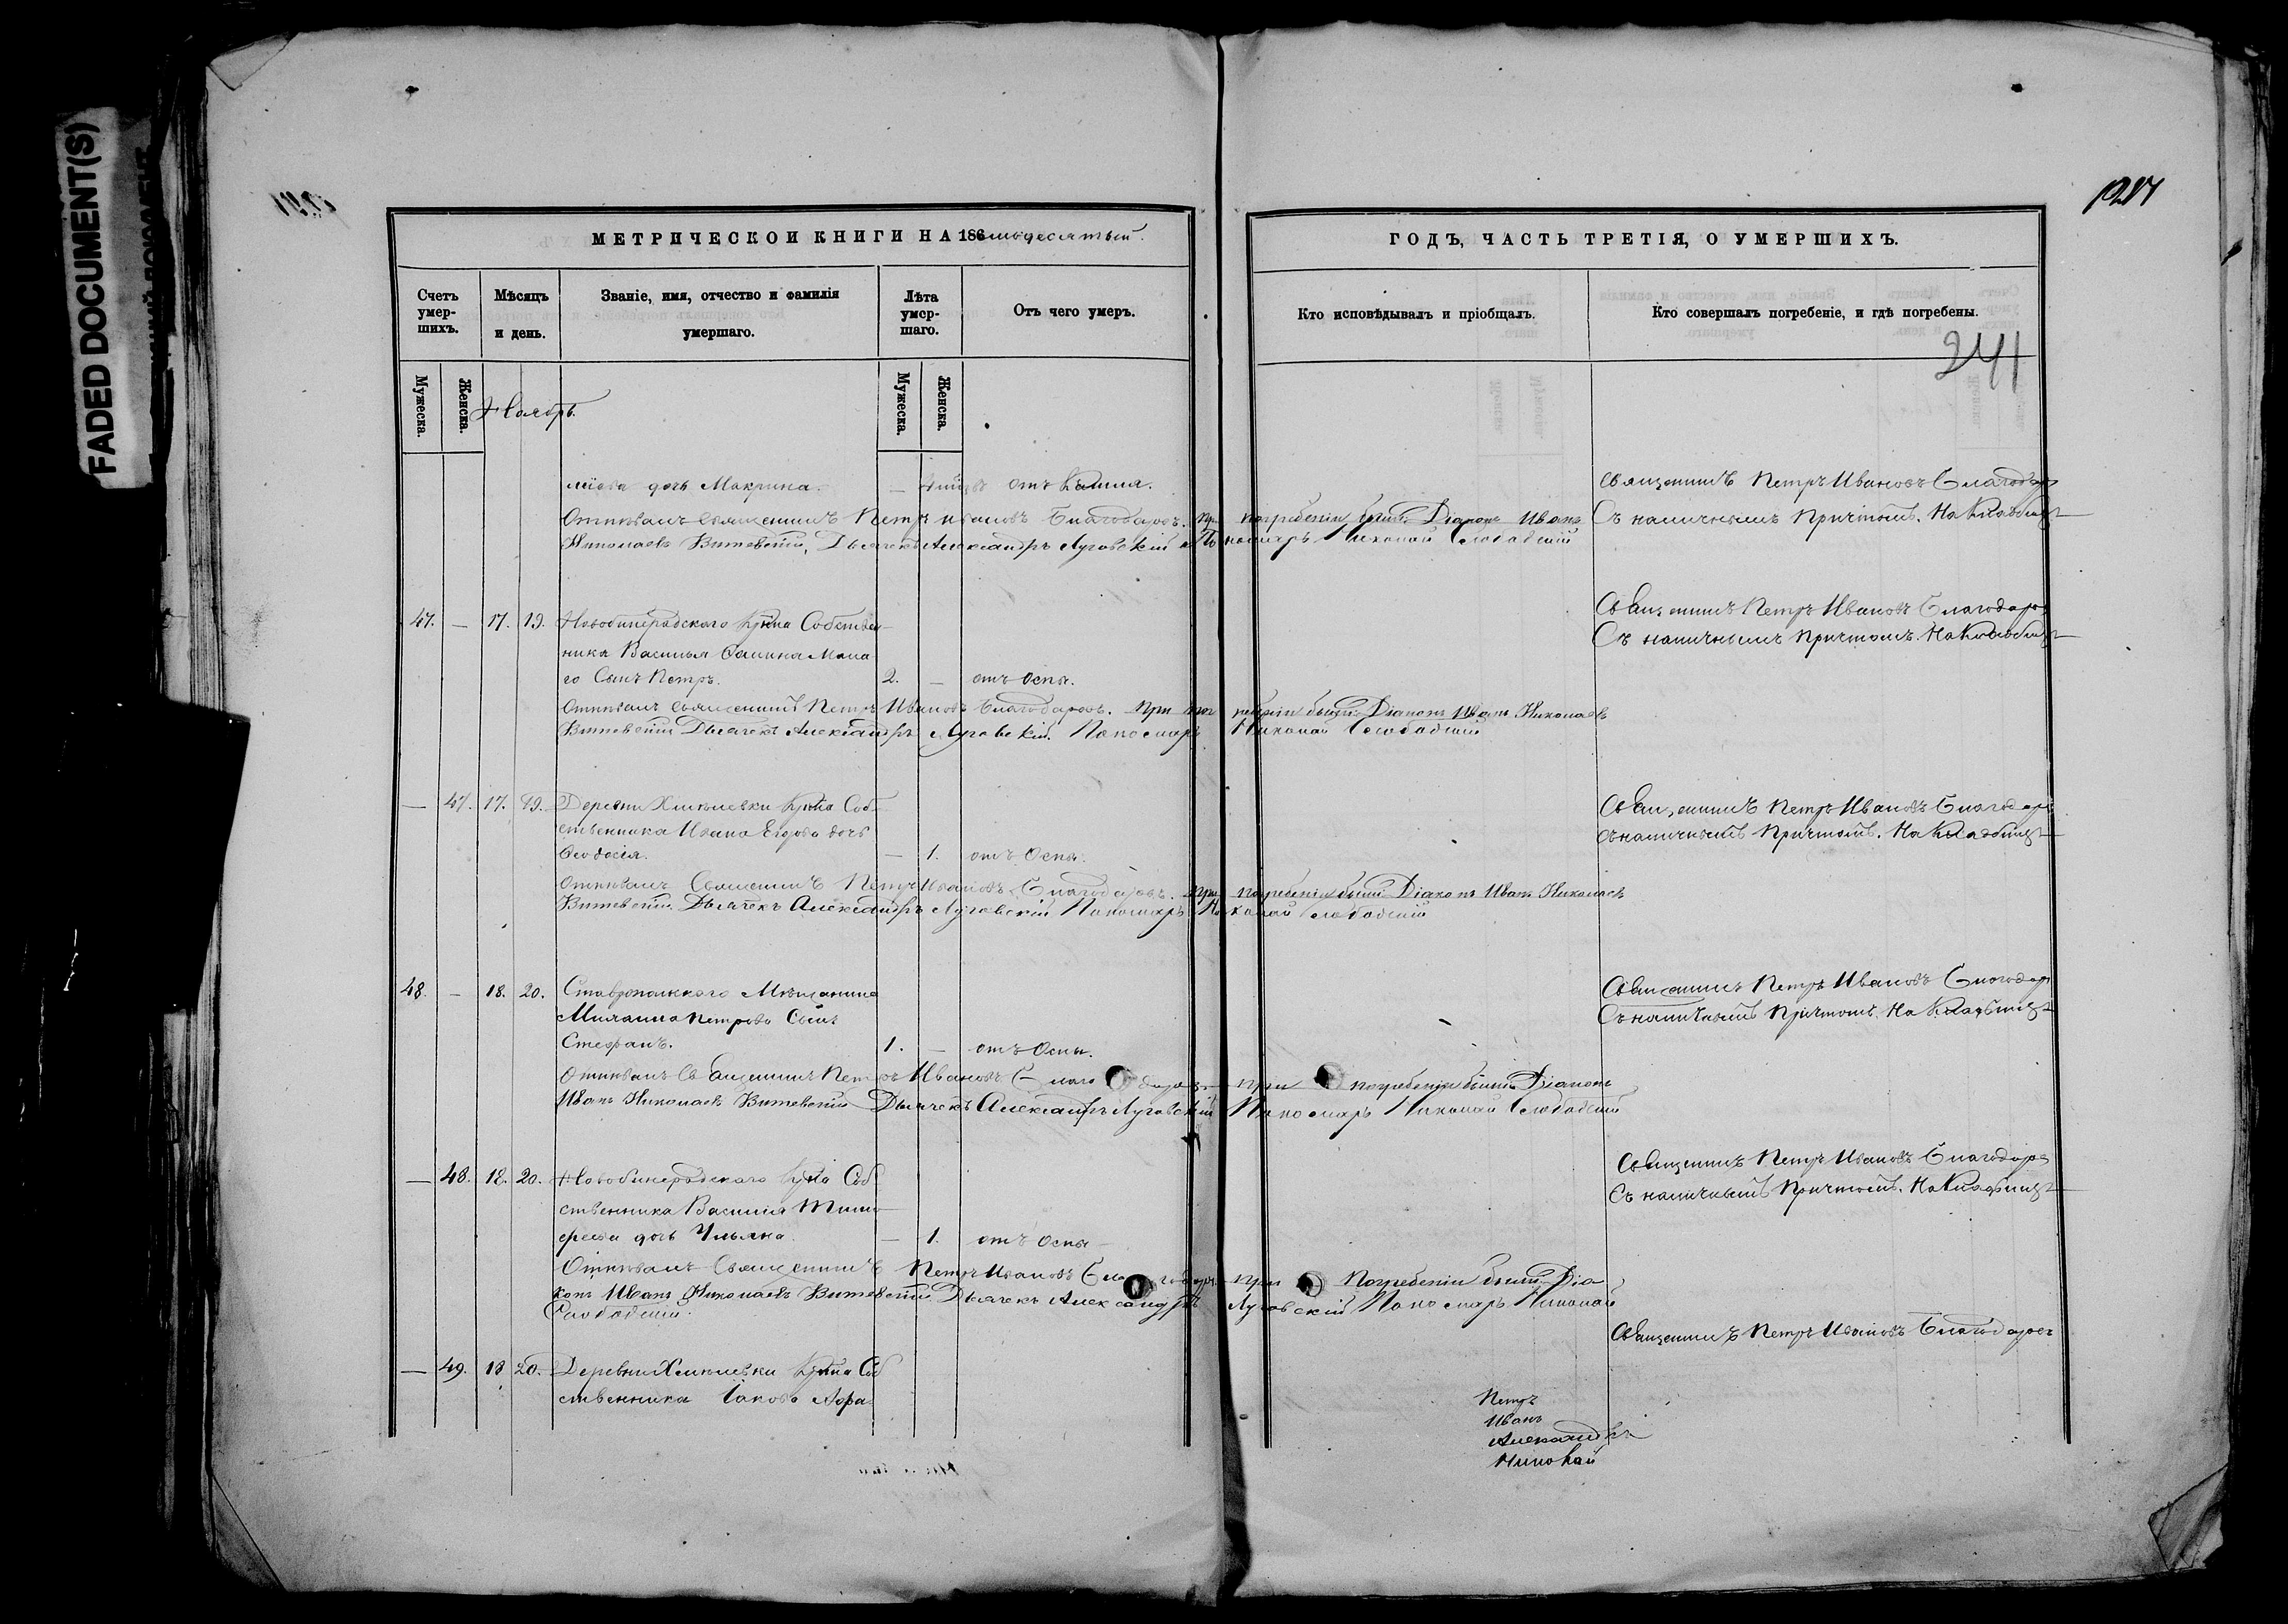 FADED DOCUMENT(S)
1217
МЕТРИЧЕСКОЙ КНИГИ НА 186 мьдесятый.
ГОДЪ, ЧАСТЬ ТРЕТІЯ, О УМЕРШИХЪ.
Счетъ умер-шихъ.
Мѣсяцъ и день.
Званіе, имя, отчество и фамилія умершаго.
Лѣта умер-шаго.
Отъ чего умеръ.
Кто исповѣдывалъ и пріобщалъ.
Кто совершалъ погребеніе, и гдѣ погребены.
241
Мужеска.
Женска.
Ноябрь.
Мужеска.
Женска.
дочь Макрина. — отъ Кашля.
Священникъ Петръ Ивановъ Благодаров
Съ наличнымъ Причтомъ. На Кладбищѣ
Отпѣвалъ Священникъ Петръ Ивановъ Благодаровъ. при погребеніи были: Діаконъ Иванъ
Николаевъ Витевскій, Дьячекъ Александръ Луговскій и Пономарь Николай Слободскій
47. — 17. 19. Новобинарадского Кр-на Собствен-
ника Василья Самина Мала-
го Сынъ Петръ. 2. — отъ Оспы.
Священникъ Петръ Ивановъ Благодаров
Съ наличнымъ Причтомъ. На Кладбищѣ
Отпѣвалъ Священникъ Петръ Ивановъ Благодаровъ. при погребеніи были: Діаконъ Иванъ Николаевъ
Витевскій Дьячекъ Александръ Луговскій. Пономарь Николай Слободскій
— 47. 17. 19. Деревни Хмѣлевки Кр-на Соб-
ственника Ивана Егорова дочь
Ѳеодосія. — 1. отъ Оспы.
Священникъ Петръ Ивановъ Благодаро
Съ наличнымъ Причтомъ. На Кладбищѣ
Отпѣвалъ Священникъ Петръ Ивановъ Благодаровъ. при погребеніи были Діаконъ Иванъ Николаевъ
Витевскій. Дьячекъ Александръ Луговскій Пономарь Николай Слободскій
48. — 18. 20. Ставропольскаго Мѣщанина
Петрова Сынъ
Стефанъ. 1. — отъ Оспы.
Священникъ Петръ Ивановъ Благодар
Съ наличнымъ Причтомъ. На Кладбищѣ
Отпѣвалъ Священникъ Петръ Ивановъ Благодаровъ при погребеніи были Діаконъ
Иванъ Николаевъ Витевскій Дьячекъ Александръ Луговскій Пономарь Николай Слободскій
— 48. 18. 20. Новобинарадского Кр-на Соб
ственника Василія Тимо-
феева дочь Ульяна. — 1. отъ Оспы
Священникъ Петръ Ивановъ Благодаро
Съ наличнымъ Причтомъ. На Кладбищѣ
Отпѣвалъ Священникъ Петръ Ивановъ Благодаро при Погребеніи были Діа
конъ Иванъ Николаевъ Витевскій. Дьячекъ Александръ Луговскій Пономарь Николай
Слободскій.
Священникъ Петръ Ивановъ Благодаров
— 49. 18 20. Деревни Хмѣлевки Кр-на Соб
ственника Іакова Афа-
Петръ
Иванъ
Александръ
Николай